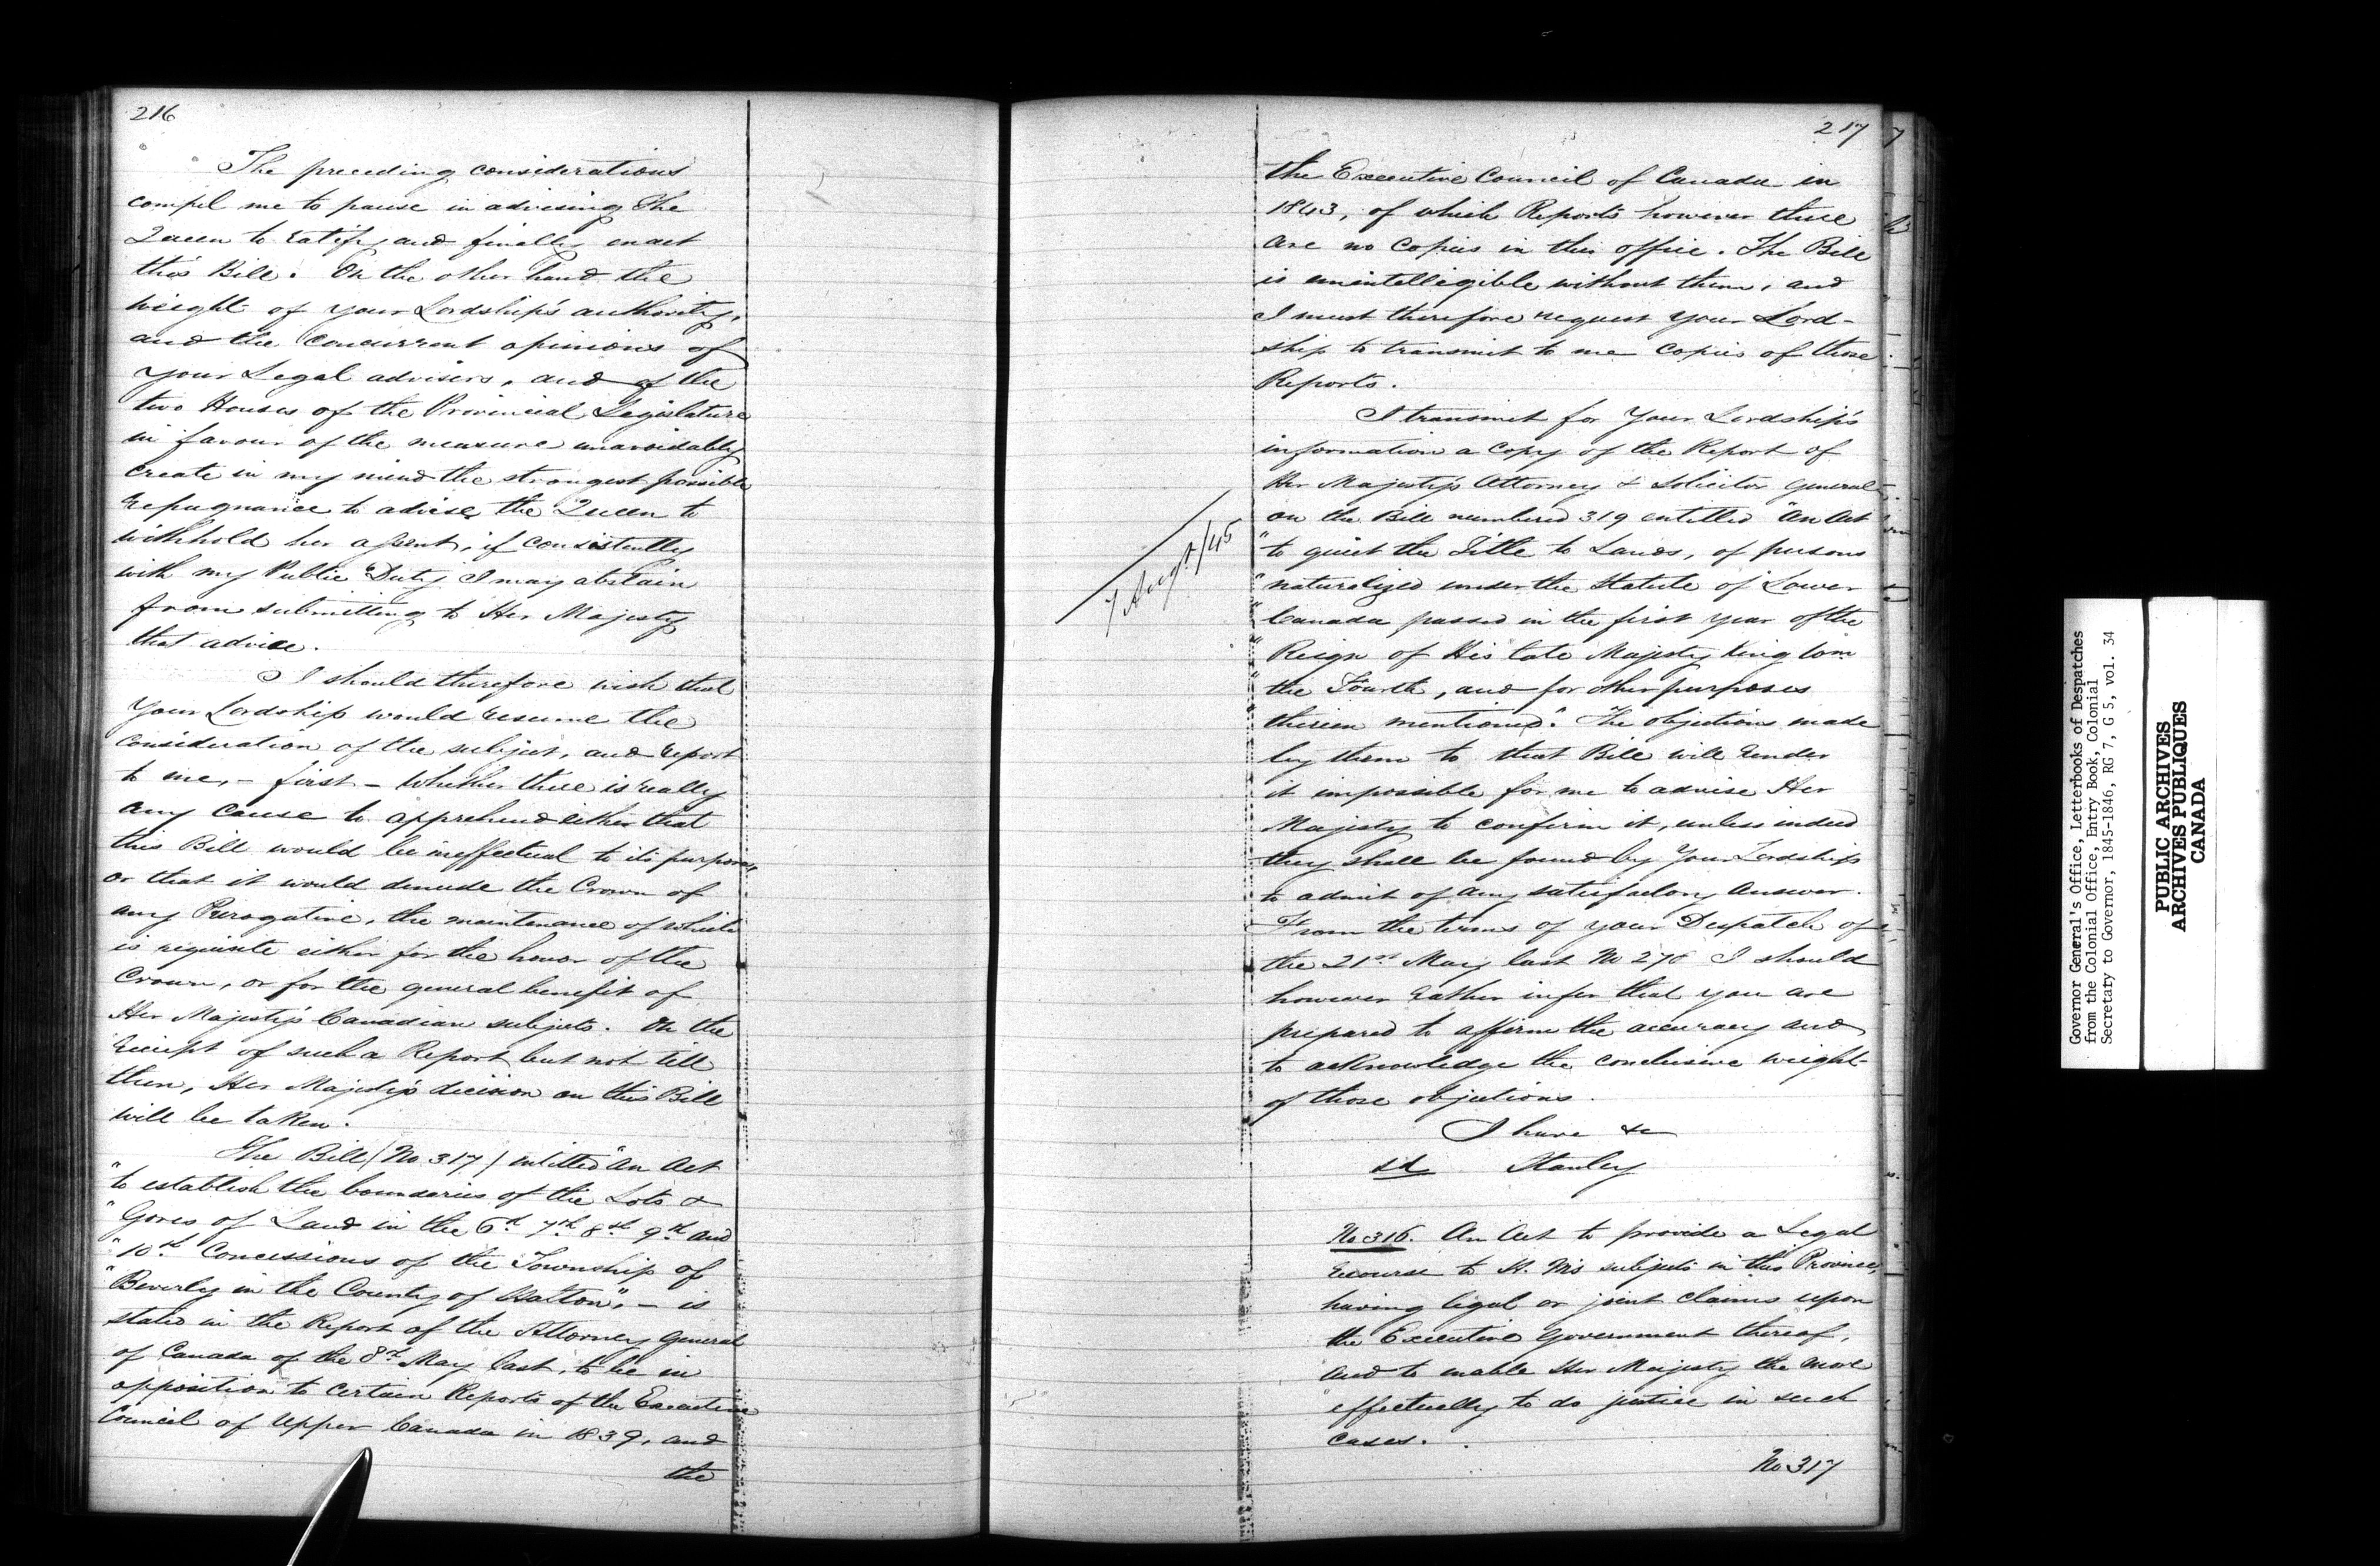 216
The preceding considerations
compel me to pause in advising The
Queen to ratify and finally enact
this Bill. On the other hand the
weight of your Lordship's authority,
and the concurrent opinions of
your Legal advisers, and of the
two Houses of the Provincial Legislature
in favour of the measure unavoidably
create in my mind the strongest possible
repugnance to advise the Queen to
withhold her assent, if consistently
with my Public Duty I may abstain
from submitting to Her Majesty
that advice.
I should therefore wish that
Your Lordship would resume the
consideration of the subject, and report
to me, - first - Whether there is really
any cause to apprehend either that
this Bill would be ineffectual to its purpose,
or that it would denude the Crown of
any Prerogative, the maintenance of which
is requisite either for the honor of the
Crown, or for the general benefit of
Her Majesty's Canadian subjects. On the
receipt of such a Report but not till
then, Her Majesty's decision on this Bill
will be taken.
The Bill (No 317) entitled "An Act
"to establish the boundaries of the Lots &
"Gores of Land in the 6th 7th 8th 9th and
"10th Concessions of the Township of
"Beverly in the County of Halton", - is
stated in the Report of the Attorney General
of Canada of the 8th May last, to be in
opposition to certain Reports of the Executive
Council of Upper Canada in 1839, and
the
217
the Executive Council of Canada in
1843, of which Reports however there
are no copies in this office. The Bill
is unintelligible without them, and
I must therefore request your Lord-
ship to transmit to me copies of those
Reports.
I transmit for Your Lordship's
information a copy of the Report of
Her Majesty's Attorney & Solicitor General
on the Bill numbered 319 entitled "An Act
"to quiet the Title to Lands, of persons
"naturalized under the Statute of Lower
"Canada passed in the first year of the
"Reign of His late Majesty King Wm
"the Fourth, and for other purposes
therein mentioned." The objections made
by them to that Bill will render
it impossible for me to advise Her
Majesty to confirm it, unless indeed
they shall be found by Your Lordship
to admit of any satisfactory answer.
From the terms of your Despatch of
the 21st May last No 276 I should
however rather infer that you are
prepared to affirm the accuracy and
to acknowledge the conclusive weight
of those objections.
I have &c
sd Stanley
7 Augt/45
No 316. An Act to provide a Legal
recourse to H. M's subjects in this Province,
having legal or joint claims upon
the Executive Government thereof,
and to enable Her Majesty the more
effectually to do justice in such
cases.
No 317
Governor General's Office, Letterbooks of Despatches
from the Colonial Office, Entry Book, Colonial
Secretary to Governor, 1845-1846, RG 7, G 5, vol. 34
PUBLIC ARCHIVES
ARCHIVES PUBLIQUES
CANADA